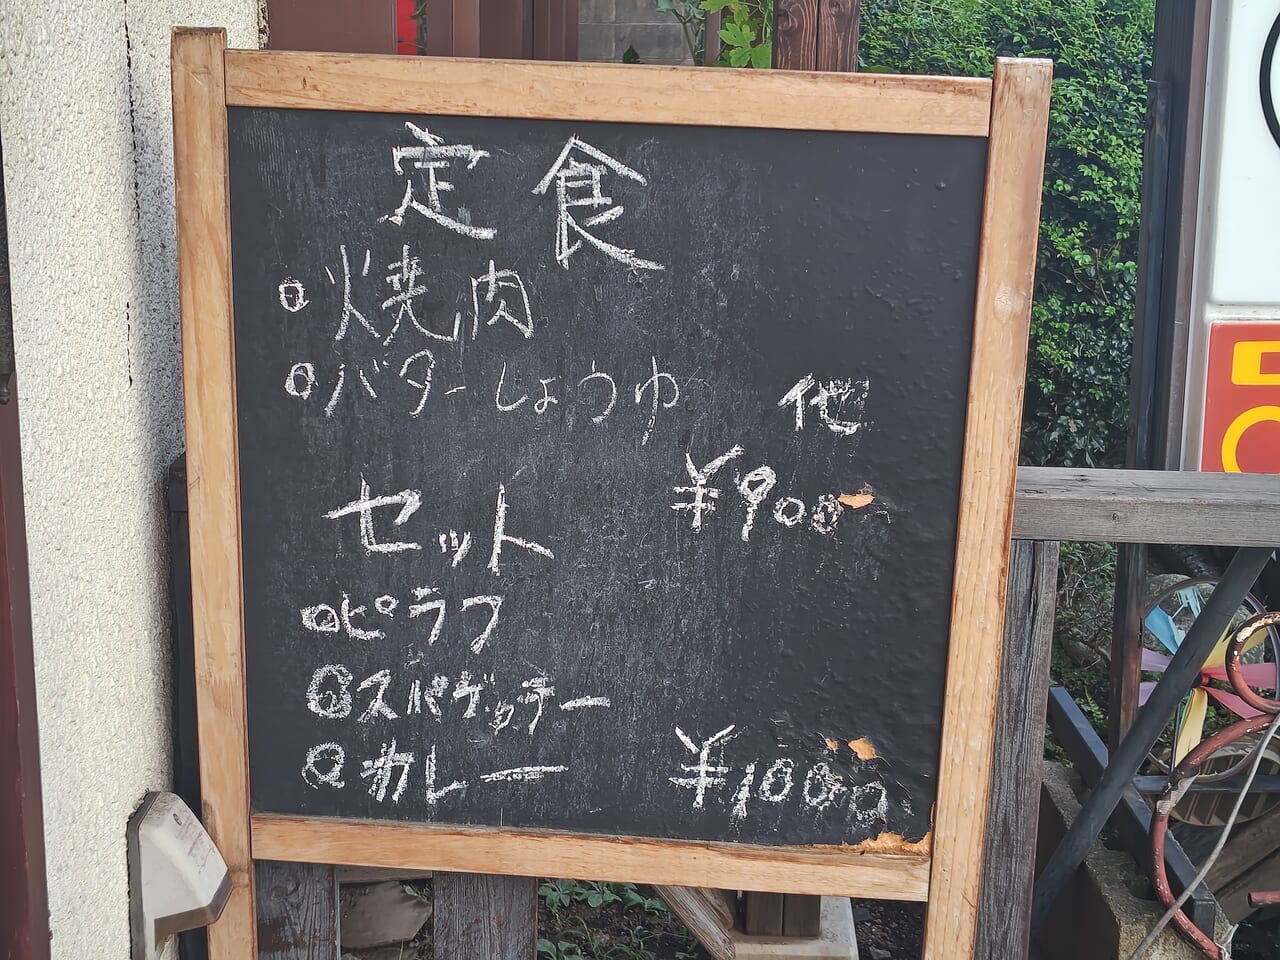 定食
焼肉
バターしょうゆ 他
¥900
セット
ピラフ
スパゲッチー
カレー ¥1000